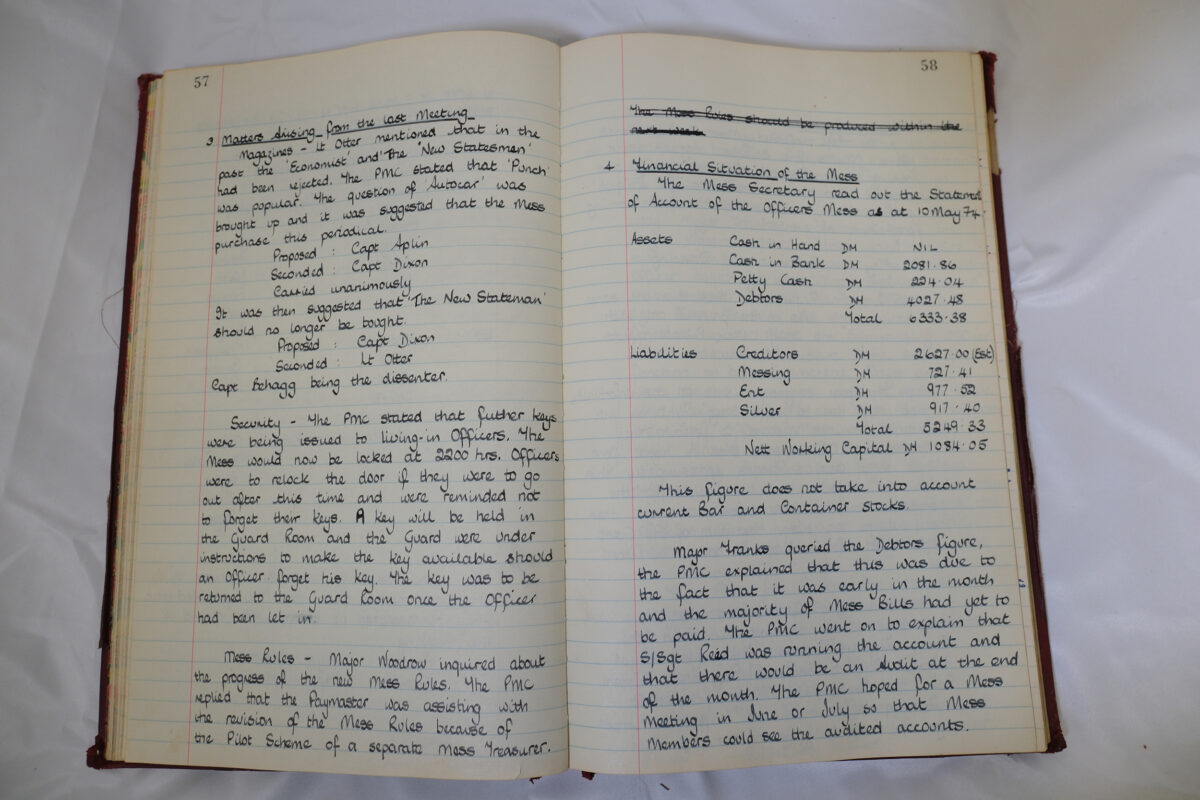 57
3 Matters Arising from the last Meeting
Magazines - Lt Otter mentioned that in the
past the 'Economist' and 'The 'New Statesman'
had been rejected. The PMC stated that 'Punch'
was popular. The question of 'Autocar' was
brought up and it was suggested that the Mess
purchase this periodical.
Proposed : Capt Aplin
Seconded : Capt Dixon
Carried unanimously
It was then suggested that 'The New Stateman'
should no longer be bought.
Proposed : Capt Dixon
Seconded : Lt Otter
Capt Behagg being the dissenter.
Security - The PMC stated that futher keys
were being issued to living-in Officers. The
Mess would now be locked at 2200 hrs. Officers
were to relock the door if they were to go
out after this time and were reminded not
to forget their keys. A key will be held in
the Guard Room and the Guard were under
instructions to make the key available should
an Officer forget his key. The key was to be
returned to the Guard Room once the Officer
had been let in.
Mess Rules - Major Woodrow inquired about
the progress of the new Mess Rules. The PMC
replied that the Paymaster was assisting with
the revision of the Mess Rules because of
the Pilot Scheme of a separate Mess Treasurer.
58
The Mess Rules should be produced within the
next week.
4 Financial Situation of the Mess
The Mess Secretary read out the Statement
of Account of the Officers Mess as at 10 May 74.
Assets Cash in Hand DM NIL
Cash in Bank DM 2081.86
Petty Cash DM 224.04
Debtors DM 4027.48
Total 6333.38
Liabilities Creditors DM 2627.00 (Est)
Messing DM 727.41
Ent DM 977.52
Silver DM 917.40
Total 5249.33
Nett Working Capital DM 1084.05
This figure does not take into account
current Bar and Container stocks.
Major Franks queried the Debtors figure,
the PMC explained that this was due to
the fact that it was early in the month
and the majority of Mess Bills had yet to
be paid. The PMC went on to explain that
S/Sgt Reid was running the account and
that there would be an Audit at the end
of the month. The PMC hoped for a Mess
Meeting in June or July so that Mess
Members could see the audited accounts.